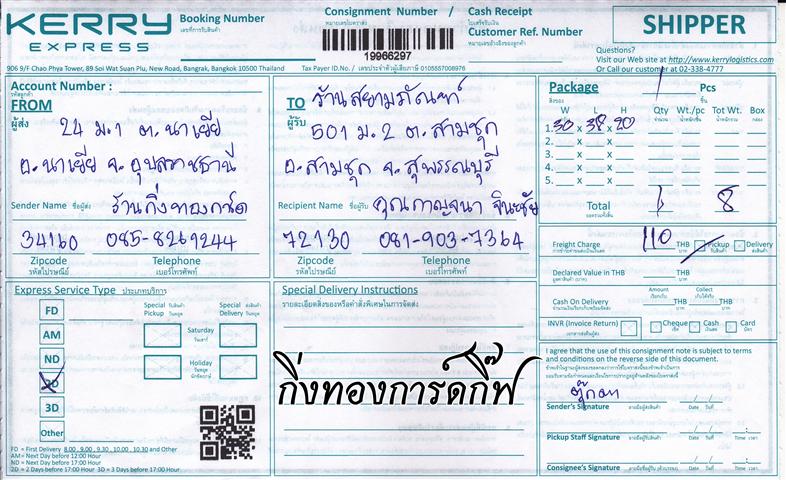 KERRY
EXPRESS
Booking Number
เลขที่การรับสินค้า
Consignment Number /
หมายเลขใบตราส่ง
19966297
Cash Receipt
ใบเสร็จรับเงิน
Customer Ref. Number
หมายเลขอ้างอิงของลูกค้า
SHIPPER
Questions?
Visit our Web site at http://www.kerrylogistics.com
Or Call our customer at 02-338-4777
906 9/F Chao Phya Tower, 89 Soi Wat Suan Plu, New Road, Bangrak, Bangkok 10500 Thailand
Tax Payer ID.No./ เลขประจำตัวผู้เสียภาษี 0105557008976
Account Number :
รหัสลูกค้า
FROM
ผู้ส่ง
24 ม.1 ต.นาเยีย
อ.นาเยีย จ.อุบลราชธานี
Sender Name ชื่อผู้ส่ง ร้านกิ่งทองการ์ด
34160 085-8269244
Zipcode Telephone
รหัสไปรษณีย์ เบอร์โทรศัพท์
TO ร้านสยามภัณฑ์
ผู้รับ 501 ม.2 ต.สามชุก
อ.สามชุก จ.สุพรรณบุรี
Recipient Name ชื่อผู้รับ คุณกาญจนา จินะชัย
72130 081-903-7364
Zipcode Telephone
รหัสไปรษณีย์ เบอร์โทรศัพท์
Package 1 Pcs
สิ่งของ ชิ้น
W L H Qty Wt./pc Tot Wt. Box
จำนวน น้ำหนัก/ชิ้น น้ำหนักรวม กล่อง
1. 30 x 38 x 20
2. x x
3. x x
4. x x
5. x x
Total 1 8
ยอดรวมทั้งสิ้น
Freight Charge 110 THB Pickup Delivery
บาท
Declared Value in THB THB
มูลค่าสินค้า บาท
Amount Collect
เรียกเก็บ เก็บได้จริง
Cash On Delivery THB THB
บาท บาท
INVR (Invoice Return) Cheque Cash Card
เช็ค เงินสด บัตร
I agree that the use of this consignment note is subject to terms
and conditions on the reverse side of this document.
ตุ๊กตา
Sender's Signature ลายมือผู้ส่งสินค้า Date วันที่
Pickup Staff Signature ลายมือผู้รับสินค้า Date วันที่ Time เวลา
Consignee's Signature Date วันที่ Time เวลา
Express Service Type ประเภทบริการ
FD
AM
ND
2D
3D
Other
Special Pickup รับสินค้า วันหยุด
Special Delivery ส่งสินค้า วันหยุด
Saturday
วันเสาร์
Holiday
วันหยุด
นักขัตฤกษ์
FD = First Delivery 8.00 , 9.00 , 9.30 , 10.00 , 10.30 and Other
AM = Next Day before 12:00 Hour
ND = Next Day before 17:00 Hour
2D = 2 Days before 17:00 Hour 3D = 3 Days before 17:00 Hour
Special Delivery Instructions
รายละเอียดสิ่งของหรือคำสั่งพิเศษในการจัดส่ง
กิ่งทองการ์ดกิ๊ฟ